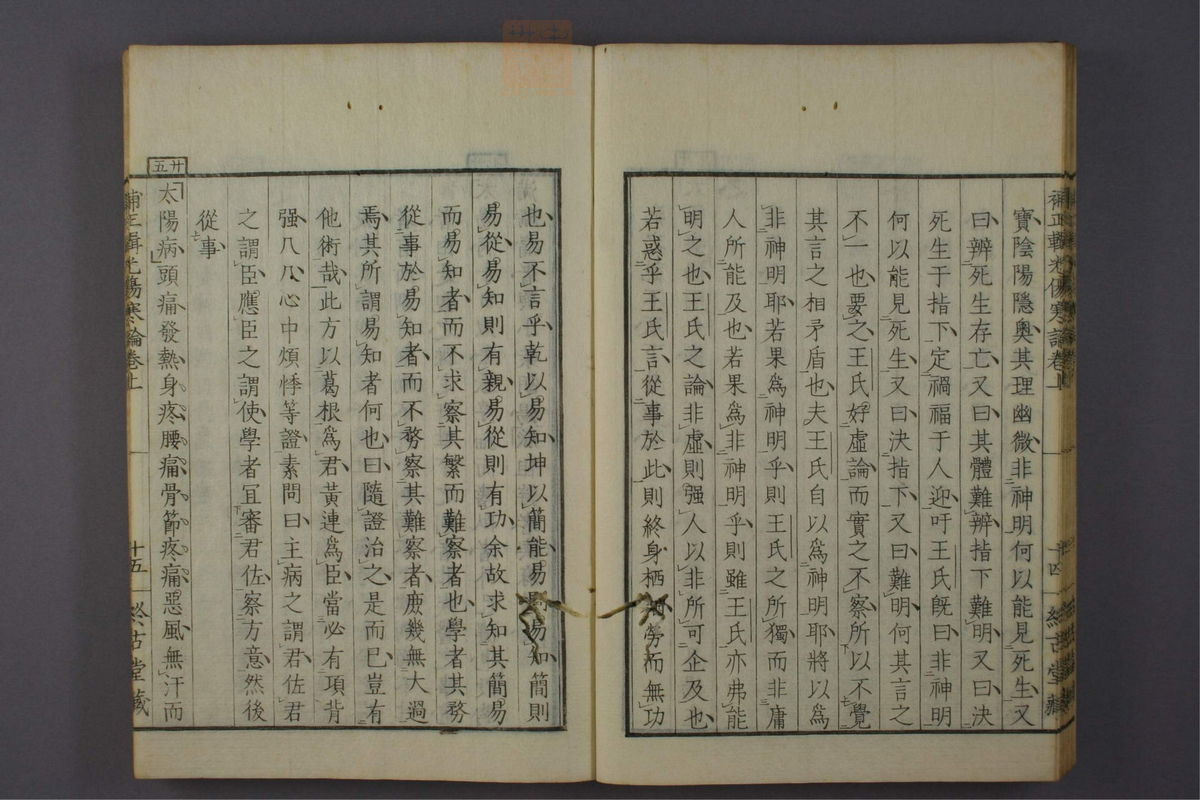 補正輯光傷寒論卷上
寶陰陽隱奧其理幽微非神明何以能見死生又
曰辨死生存亡又曰其體難辨指下難明又曰決
死生于指下定禍福于人迎吁王氏既曰非神明
何以能見死生又曰決指下又曰難明何其言之
不一也要之王氏好虛論而實之不察所以不覺
其言之相矛盾也夫王氏自以爲神明耶將以爲
非神明耶若果爲神明乎則王氏之所獨而非庸
人所能及也若果爲非神明乎則雖王氏亦弗能
明之也王氏之論非虛則强人以非所可企及也
若惑乎王氏言從事於此則終身栖栖勞而無功
也易不言乎乾以易知坤以簡能易則易知簡則
易從易知則有親易從則有功余故求知其簡易
而易知者而不求察其繁而難察者也學者其務
從事於易知者而不務察其難察者庶幾無大過
焉其所謂易知者何也曰隨證治之是而已豈有
他術哉此方以葛根爲君黃連爲臣當必有項背
强几几心中煩悸等證素問曰主病之謂君佐君
之謂臣應臣之謂使學者宜審君佐察方意然後
從事
廿五
太陽病頭痛發熱身疼腰痛骨節疼痛惡風無汗而
補正輯光傷寒論卷上
十五